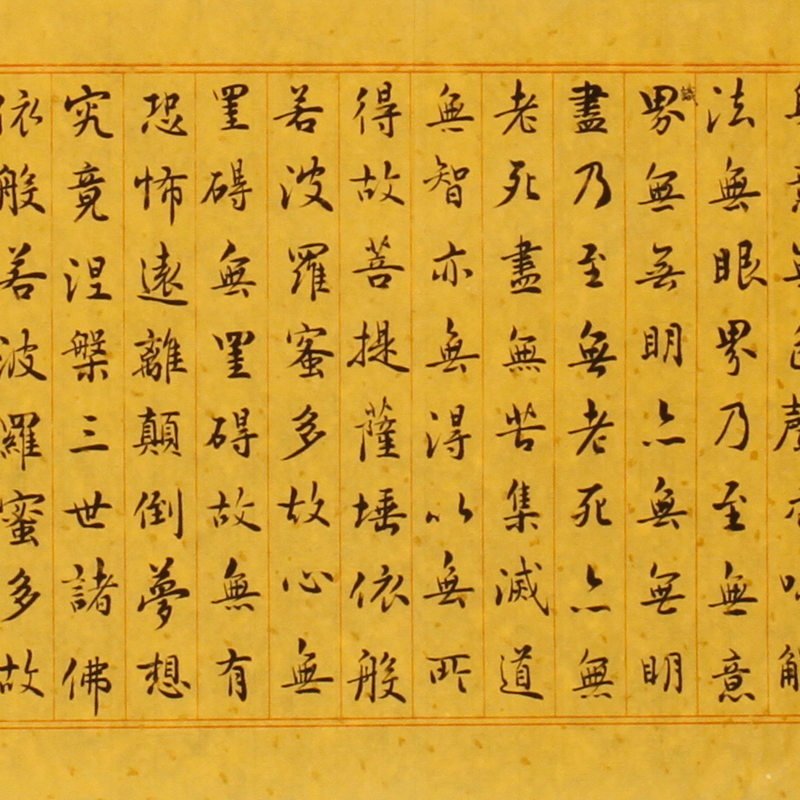 身意無色聲香味觸
法無眼界乃至無意
識界無無明亦無無明
盡乃至無老死亦無
老死盡無苦集滅道
無智亦無得以無所
得故菩提薩埵依般
若波羅蜜多故心無
罣碍無罣碍故無有
恐怖遠離顛倒夢想
究竟涅槃三世諸佛
依般若波羅蜜多故